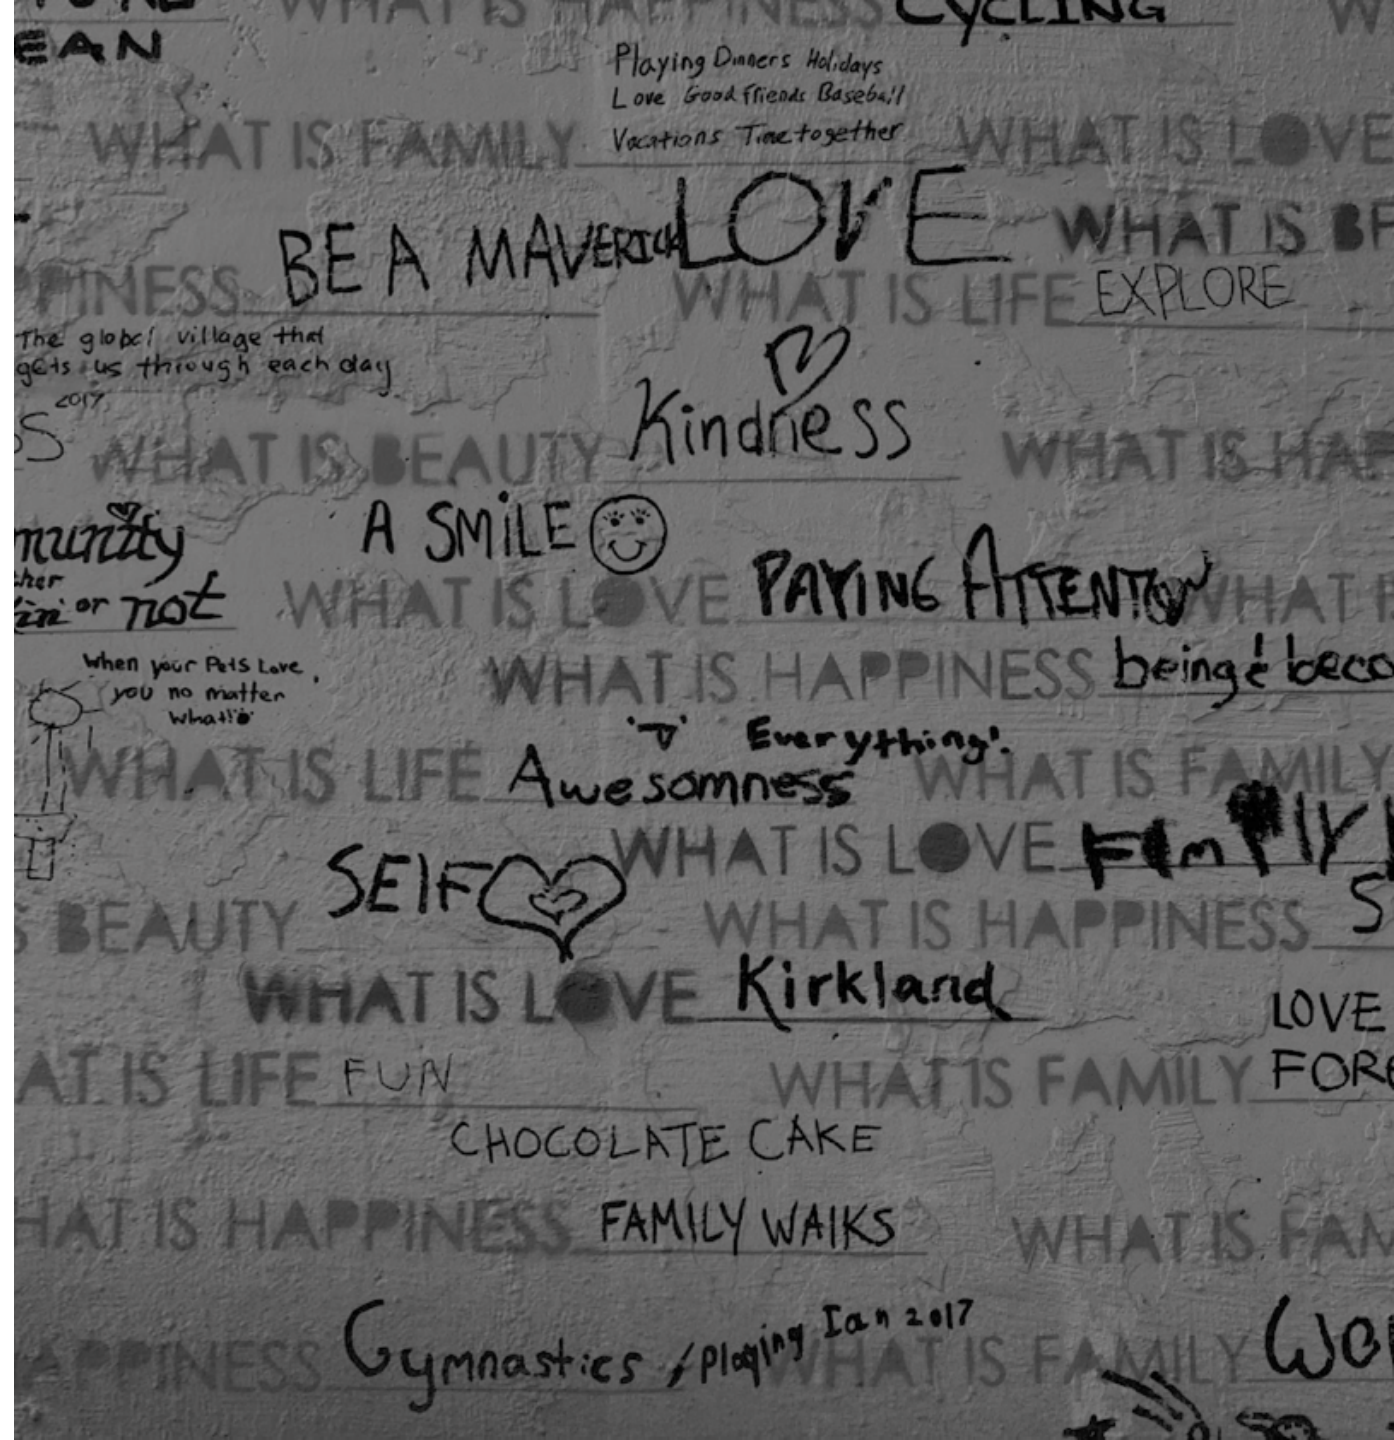 WHAT IS HAPPINESS CYCLING
EAN
Playing Dinners Holidays
Love Good friends Baseball
Vacations Time together
WHAT IS FAMILY
WHAT IS LOVE
BE A MAVERICK LOVE
WHAT IS
PINESS
WHAT IS LIFE EXPLORE
The global village that
gets us through each day
2017
Kindness
WHAT IS BEAUTY
WHAT IS HAP
A SMiLE
munity
her
or not
WHAT IS LOVE PAYING ATTENTION
WHAT
WHAT IS HAPPINESS being & beco
When your Pets Love
you no matter
what!
Everything!
WHAT IS LIFE Awesomness
WHAT IS FAMILY
WHAT IS LOVE FamIly
SElF
S
S BEAUTY
WHAT IS HAPPINESS
WHAT IS LOVE Kirkland
LOVE
AT IS LIFE FUN
WHAT IS FAMILY FORE
CHOCOLATE CAKE
HAT IS HAPPINESS FAMILY WAlKS
WHAT IS FAM
APPINESS Gymnastics / playing Ian 2017
WHAT IS FAMILY Wor